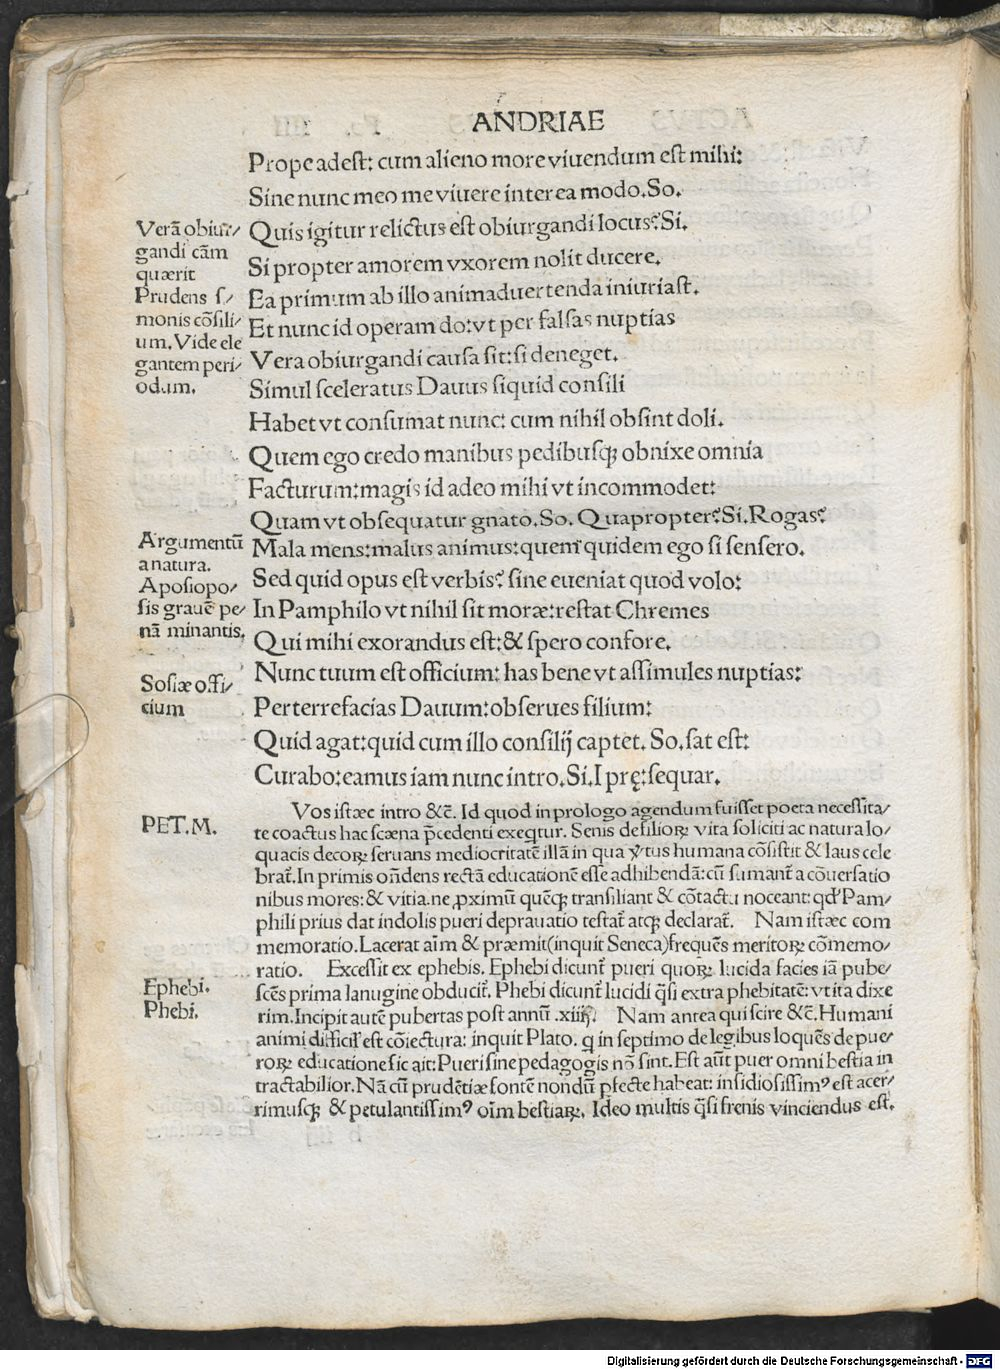 ANDRIAE
Prope adest: cum alieno more viuendum est mihi:
Sine nunc meo me viuere interea modo. So.
Quis igitur relictus est obiurgandi locus? Si.
Si propter amorem vxorem nolit ducere.
Ea primum ab illo animaduertenda iniuriast.
Et nunc id operam do: vt per falsas nuptias
Vera obiurgandi causa sit: si deneget.
Simul sceleratus Dauus siquid consili
Habet vt consumat nunc: cum nihil obsint doli.
Quem ego credo manibus pedibusqꝫ obnixe omnia
Facturum: magis id adeo mihi vt incommodet:
Quam vt obsequatur gnato. So. Quapropter? Si. Rogas?
Mala mens: malus animus: quem quidem ego si sensero.
Sed quid opus est verbis? sine eueniat quod volo:
In Pamphilo vt nihil sit moræ: restat Chremes
Qui mihi exorandus est: & spero confore.
Nunc tuum est officium: has bene vt assimules nuptias:
Perterrefacias Dauum: obserues filium:
Quid agat: quid cum illo consilij captet. So. sat est:
Curabo: eamus iam nunc intro. Si. I prę: sequar.
Verā obiur/
gandi cām
quærit
Prudens s/
monis cōsili/
um. Vide ele
gantem peri/
odum.
Argumentū
a natura.
Aposiopo/
sis grauē pe/
nā minantis.
Sosiæ offi/
cium
PET. M.
Vos istæc intro &c̄. Id quod in prologo agendum fuisset poeta necessita/
te coactus hac scæna p̄cedenti exeqtur. Senis de filioꝝ vita soliciti ac natura lo/
quacis decoꝝ seruans mediocritatē illā in qua v̓tus humana cōsistit & laus cele
brat̄. In primis on̄dens rectā educationē esse adhibendā: cū sumant̄ a cōuersatio
nibus mores: & vitia. ne ꝓximū quēqꝫ transiliant & cōtactu noceant: qd̓ Pam/
phili prius dat indolis pueri deprauatio testat̄ atqꝫ declarat̄. Nam istæc com
memoratio. Lacerat aīm & præmit (inquit Seneca) frequēs meritoꝝ cōmemo/
ratio. Excessit ex ephebis. Ephebi dicunt̄ pueri quoꝝ lucida facies iā pube/
scēs prima lanugine obducit̄. Phebi dicunt̄ lucidi q̄si extra phebitatē: vt ita dixe
rim. Incipit autē pubertas post annū .xiiij. Nam antea qui scire &c̄. Humani
animi difficil̓ est cōiectura: inquit Plato. q in septimo de legibus loquēs de pue/
roꝝ educatione sic ait: Pueri sine pedagogis nō sint. Est aūt puer omni bestia in
tractabilior. Nā cū prudētiæ fontē nondū ꝑfecte habeat: insidiosissimꝰ est acer/
rimusqꝫ & petulantissimꝰ oīm bestiaꝝ. Ideo multis q̄si frenis vinciendus est.
Ephebi.
Phebi.
Digitalisierung gefördert durch die Deutsche Forschungsgemeinschaft - DFG